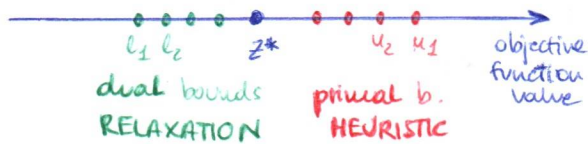 l₁ l₂ z* u₂ u₁
objective
function
value
dual bounds
RELAXATION
primal b.
HEURISTIC